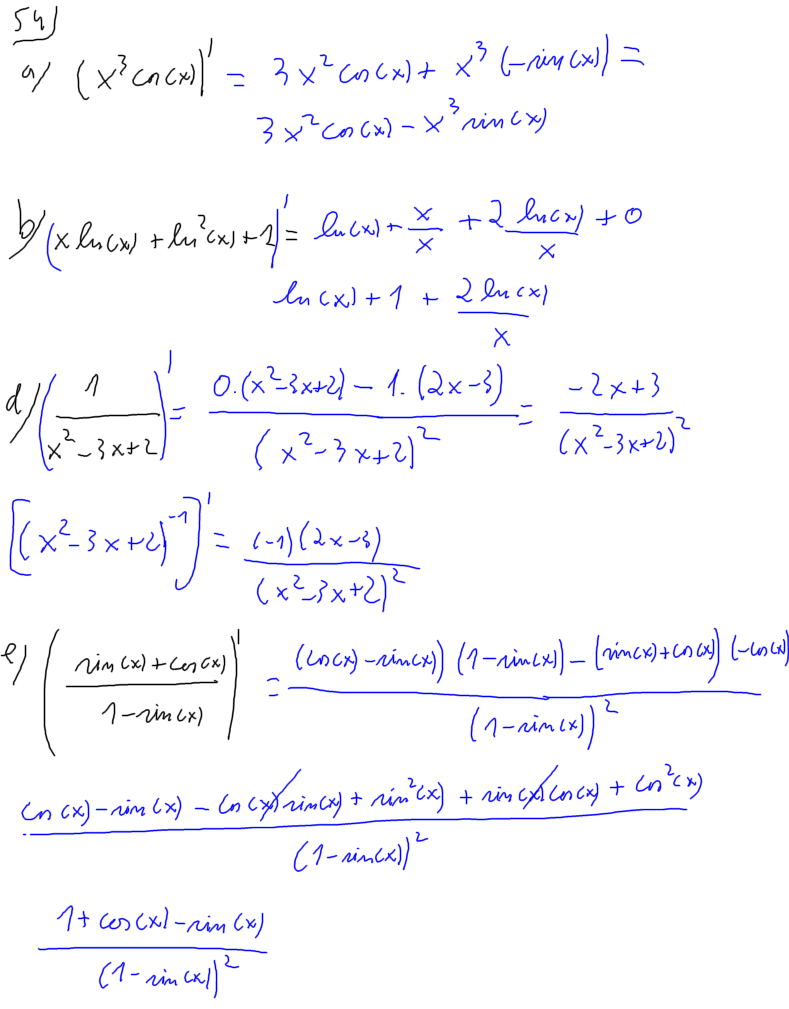 54)
a) (x³cos(x))' = 3x²cos(x) + x³(-sin(x)) =
3x²cos(x) - x³sin(x)
b) (x ln(x) + ln²(x) + 1)' = ln(x) + x/x + 2 ln(x)/x + 0
ln(x) + 1 + 2 ln(x)/x
d) (1/(x²-3x+2))' = (0.(x²-3x+2) - 1.(2x-3))/(x²-3x+2)² = (-2x+3)/(x²-3x+2)²
[(x²-3x+2)⁻¹]' = (-1)(2x-3)/(x²-3x+2)²
e) ((sin(x)+cos(x))/(1-sin(x)))' = ((cos(x)-sin(x))(1-sin(x)) - (sin(x)+cos(x))(-cos(x)))/(1-sin(x))²
(cos(x)-sin(x) - cos(x)sin(x) + sin²(x) + sin(x)cos(x) + cos²(x))/(1-sin(x))²
(1+cos(x)-sin(x))/(1-sin(x))²